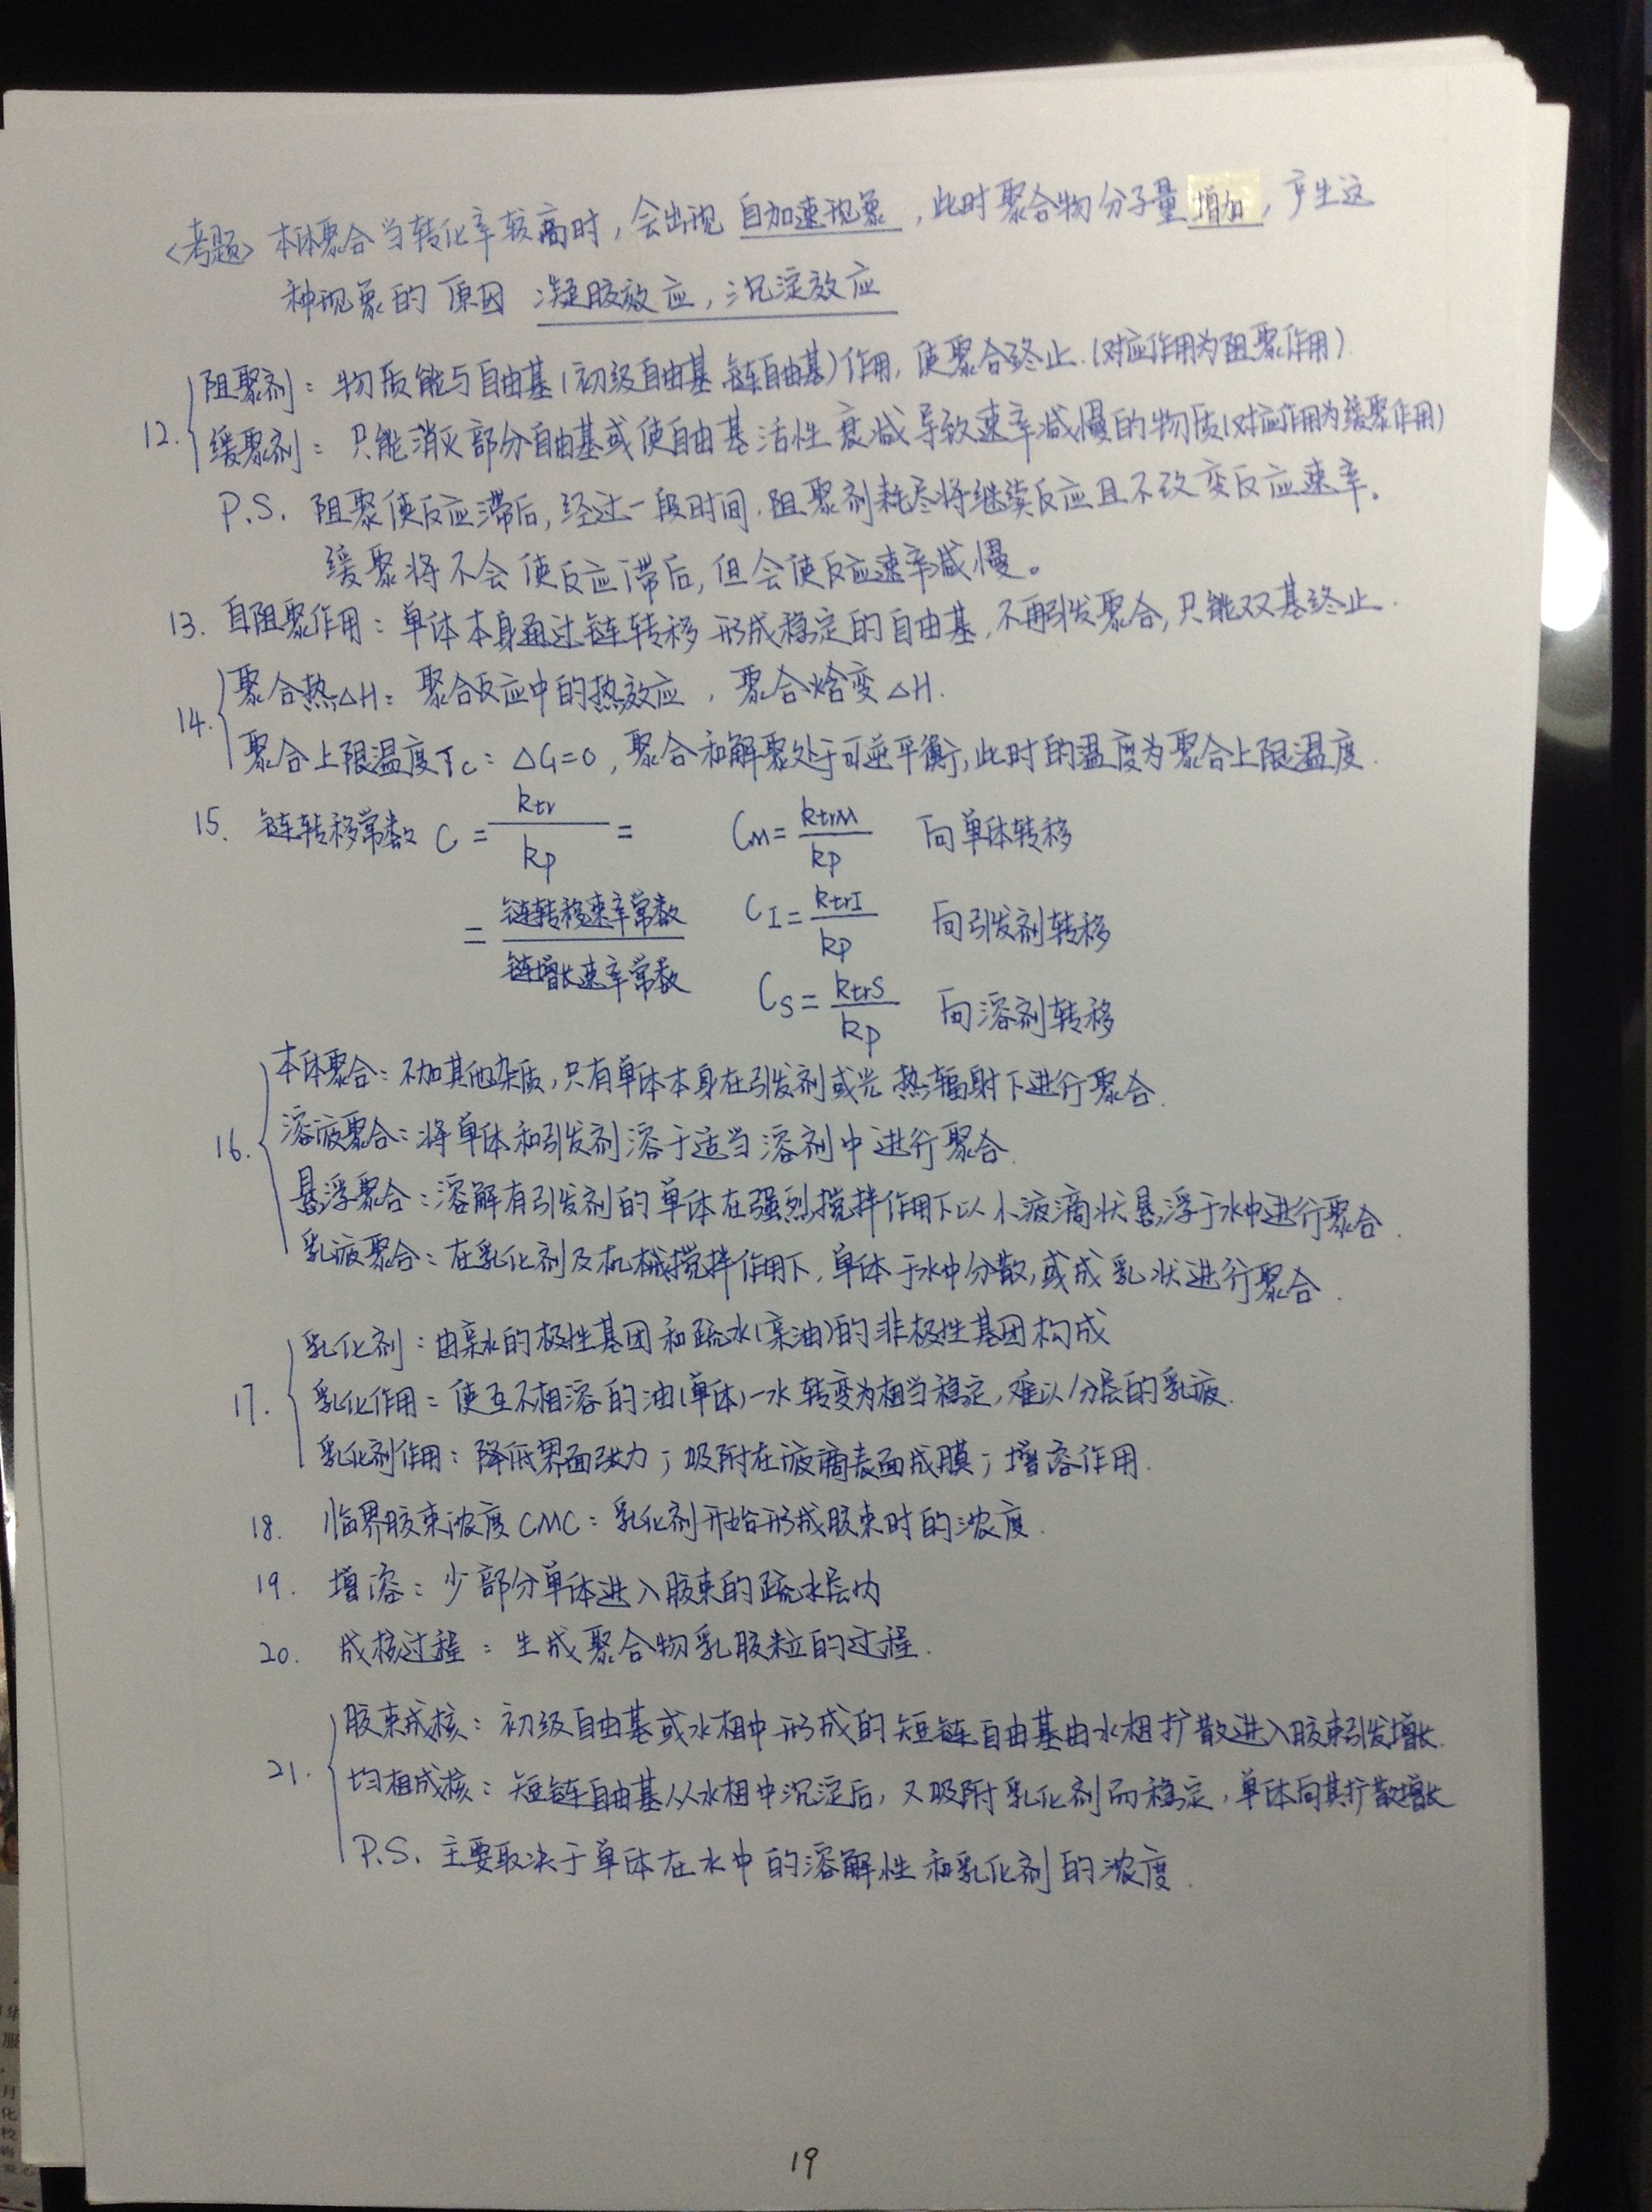 <考题> 本体聚合当转化率较高时，会出现 自加速现象，此时聚合物分子量 增加，产生这
种现象的原因 凝胶效应，沉淀效应
12. 阻聚剂：物质能与自由基(初级自由基 链自由基)作用，使聚合终止.(对应作用为阻聚作用)
缓聚剂：只能消灭部分自由基或使自由基活性衰减导致速率减慢的物质(对应作用为缓聚作用)
P.S. 阻聚使反应滞后，经过一段时间.阻聚剂耗尽将继续反应且不改变反应速率。
缓聚将不会使反应滞后，但会使反应速率减慢。
13. 自阻聚作用：单体本身通过链转移形成稳定的自由基，不再引发聚合，只能双基终止.
14. 聚合热△H：聚合反应中的热效应，聚合焓变△H.
聚合上限温度Tc：△G=0，聚合和解聚处于可逆平衡，此时的温度为聚合上限温度.
15. 链转移常数 C = ktr/kp = CM = ktrM/kp 向单体转移
= 链转移速率常数/链增长速率常数 CI = ktrI/kp 向引发剂转移
CS = ktrS/kp 向溶剂转移
16. 本体聚合：不加其他杂质，只有单体本身在引发剂或光 热 辐射下进行聚合.
溶液聚合：将单体和引发剂溶于适当溶剂中进行聚合.
悬浮聚合：溶解有引发剂的单体在强烈搅拌作用下以小液滴状悬浮于水中进行聚合.
乳液聚合：在乳化剂及机械搅拌作用下，单体于水中分散，或成乳状进行聚合.
17. 乳化剂：由亲水的极性基团和疏水(亲油)的非极性基团构成
乳化作用：使互不相溶的油(单体)—水转变为相当稳定，难以分层的乳液.
乳化剂作用：降低界面张力；吸附在液滴表面成膜；增溶作用.
18. 临界胶束浓度CMC：乳化剂开始形成胶束时的浓度.
19. 增溶：少部分单体进入胶束的疏水层内
20. 成核过程：生成聚合物乳胶粒的过程.
21. 胶束成核：初级自由基或水相中形成的短链自由基由水相扩散进入胶束引发增长.
均相成核：短链自由基从水相中沉淀后，又吸附乳化剂而稳定，单体向其扩散增长
P.S. 主要取决于单体在水中的溶解性和乳化剂的浓度.
19